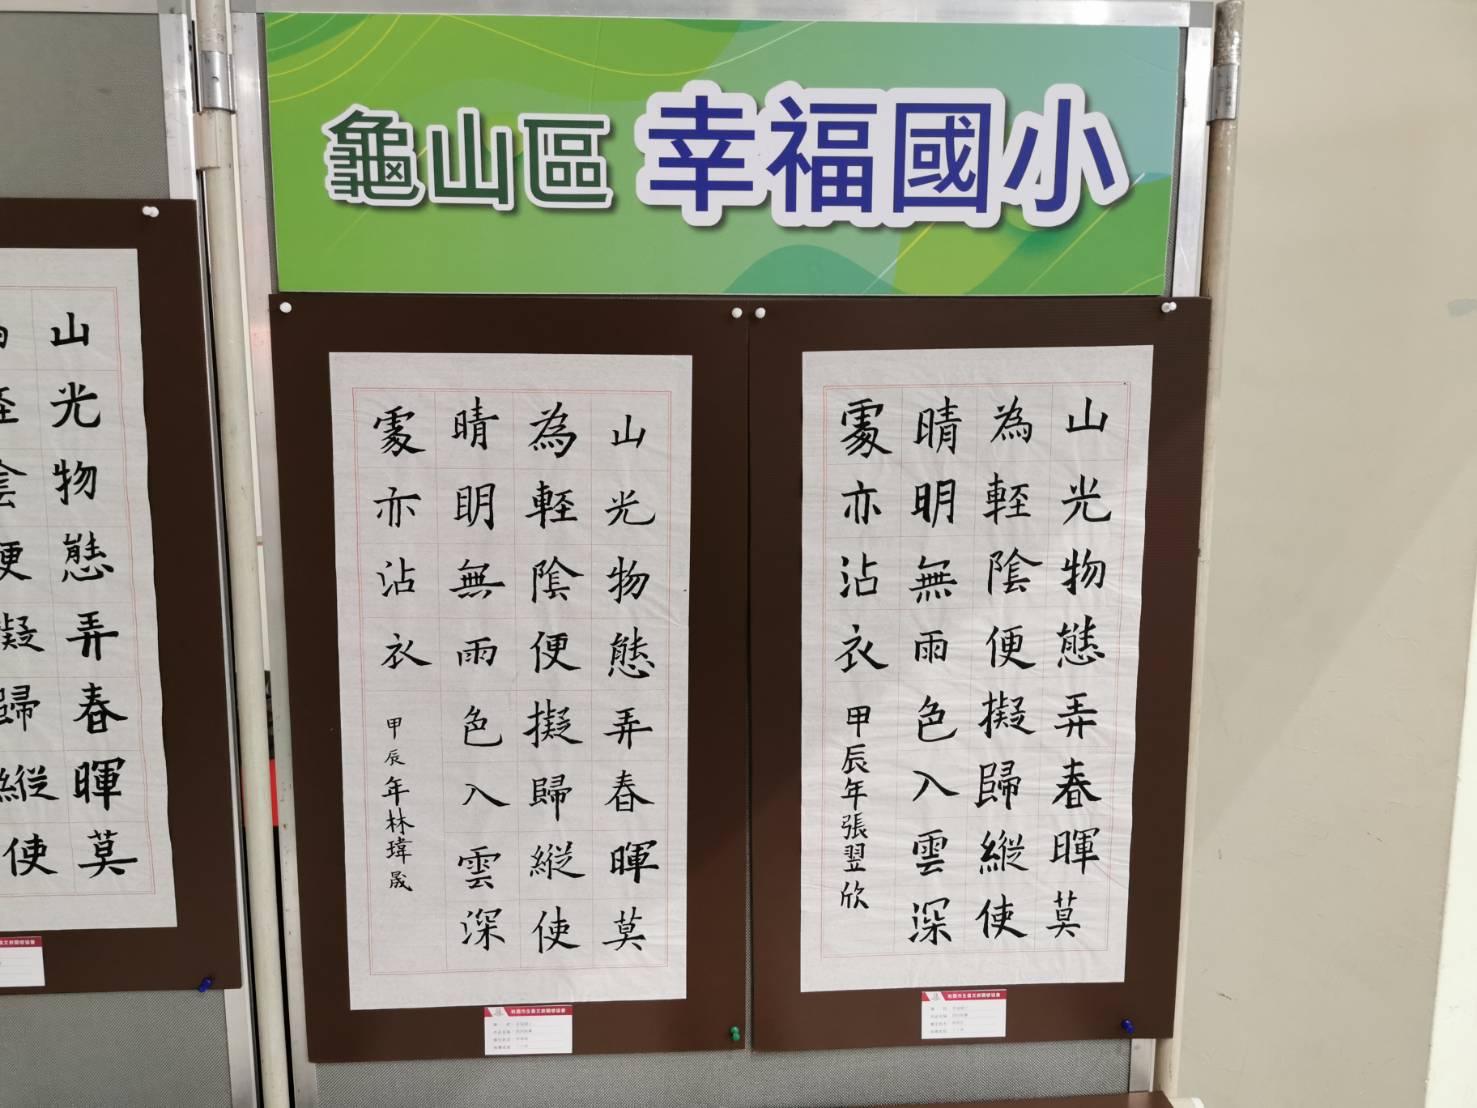 龜山區 幸福國小
山光物態弄春暉莫
為輕陰便擬歸縱使
晴明無雨色入雲深
處亦沾衣
甲辰年張翌欣
山光物態弄春暉莫
為輕陰便擬歸縱使
晴明無雨色入雲深
處亦沾衣
甲辰年林瑋晟
山光物態弄春暉莫
便擬歸縱使